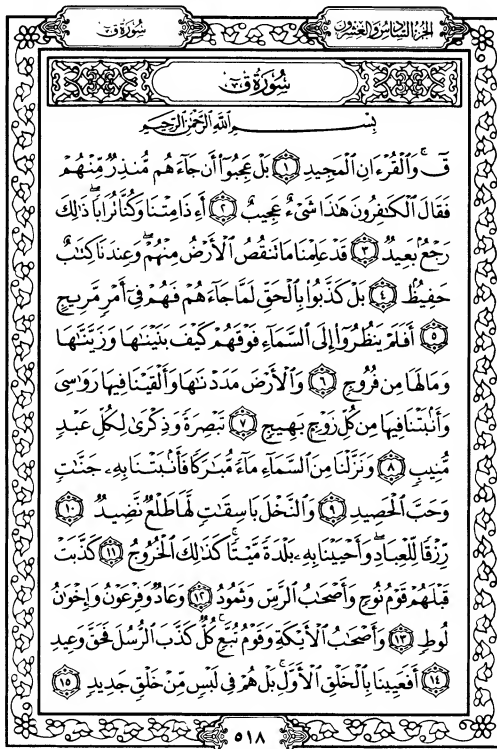 الجزء السادس والعشرون
سورة ق
سورة ق
بسم الله الرحمن الرحيم
قٓ ۚ وَٱلْقُرْءَانِ ٱلْمَجِيدِ ١ بَلْ عَجِبُوٓا۟ أَن جَآءَهُم مُّنذِرٌ مِّنْهُمْ
فَقَالَ ٱلْكَٰفِرُونَ هَٰذَا شَىْءٌ عَجِيبٌ ٢ أَءِذَا مِتْنَا وَكُنَّا تُرَابًا ۖ ذَٰلِكَ
رَجْعٌۢ بَعِيدٌ ٣ قَدْ عَلِمْنَا مَا تَنقُصُ ٱلْأَرْضُ مِنْهُمْ ۖ وَعِندَنَا كِتَٰبٌ
حَفِيظٌۢ ٤ بَلْ كَذَّبُوا۟ بِٱلْحَقِّ لَمَّا جَآءَهُمْ فَهُمْ فِىٓ أَمْرٍ مَّرِيجٍ
٥ أَفَلَمْ يَنظُرُوٓا۟ إِلَى ٱلسَّمَآءِ فَوْقَهُمْ كَيْفَ بَنَيْنَٰهَا وَزَيَّنَّٰهَا
وَمَا لَهَا مِن فُرُوجٍ ٦ وَٱلْأَرْضَ مَدَدْنَٰهَا وَأَلْقَيْنَا فِيهَا رَوَٰسِىَ
وَأَنۢبَتْنَا فِيهَا مِن كُلِّ زَوْجٍۭ بَهِيجٍ ٧ تَبْصِرَةً وَذِكْرَىٰ لِكُلِّ عَبْدٍ
مُّنِيبٍ ٨ وَنَزَّلْنَا مِنَ ٱلسَّمَآءِ مَآءً مُّبَٰرَكًا فَأَنۢبَتْنَا بِهِۦ جَنَّٰتٍ
وَحَبَّ ٱلْحَصِيدِ ٩ وَٱلنَّخْلَ بَاسِقَٰتٍ لَّهَا طَلْعٌ نَّضِيدٌ ١٠
رِّزْقًا لِّلْعِبَادِ ۖ وَأَحْيَيْنَا بِهِۦ بَلْدَةً مَّيْتًا ۚ كَذَٰلِكَ ٱلْخُرُوجُ ١١ كَذَّبَتْ
قَبْلَهُمْ قَوْمُ نُوحٍ وَأَصْحَٰبُ ٱلرَّسِّ وَثَمُودُ ١٢ وَعَادٌ وَفِرْعَوْنُ وَإِخْوَٰنُ
لُوطٍ ١٣ وَأَصْحَٰبُ ٱلْأَيْكَةِ وَقَوْمُ تُبَّعٍ ۚ كُلٌّ كَذَّبَ ٱلرُّسُلَ فَحَقَّ وَعِيدِ
١٤ أَفَعَيِينَا بِٱلْخَلْقِ ٱلْأَوَّلِ ۚ بَلْ هُمْ فِى لَبْسٍ مِّنْ خَلْقٍ جَدِيدٍ ١٥
٥١٨